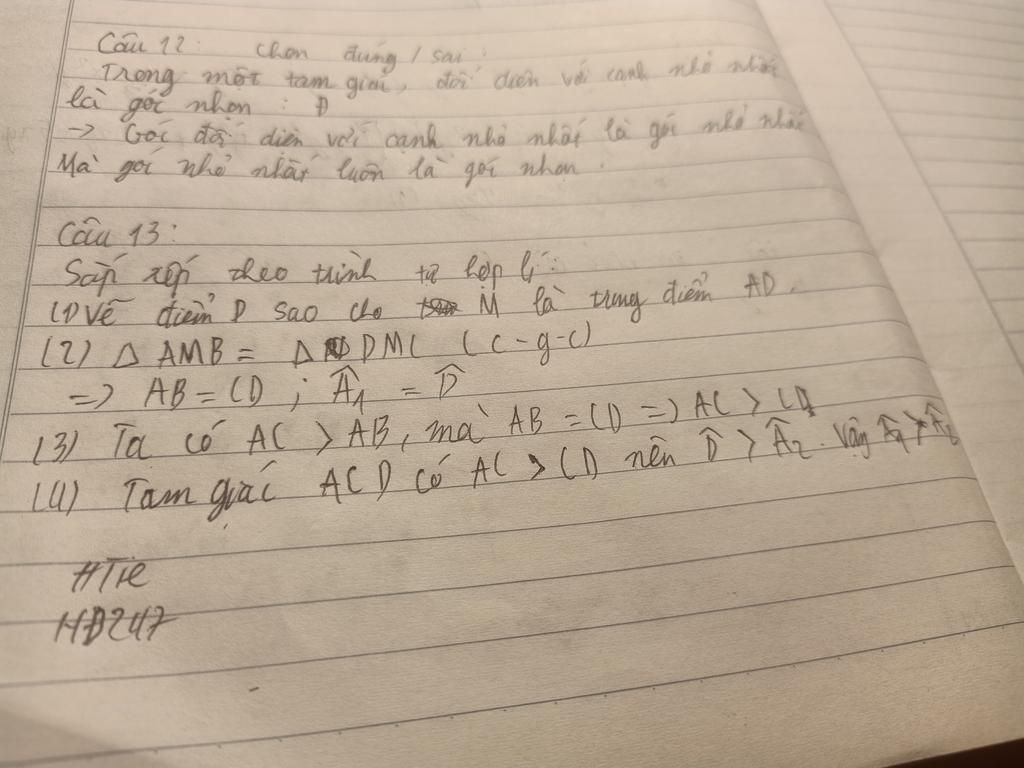 Câu 12: Chọn đúng / sai:
Trong một tam giác, đối diện với cạnh nhỏ nhất
là góc nhọn: Đ
-> Góc đối diện với cạnh nhỏ nhất là góc nhỏ nhất
Mà góc nhỏ nhất luôn là góc nhọn.
Câu 13:
Sắp xếp theo trình tự hợp lí:
(1) Vẽ điểm D sao cho M là trung điểm AD.
(2) Δ AMB = Δ DMC (c-g-c)
=> AB = CD ; Â₁ = D̂
(3) Ta có AC > AB, mà AB = CD => AC > CD
(4) Tam giác ACD có AC > CD nên D̂ > Â₂. Vậy Â₁ > Â₂
#Tie
HĐ247